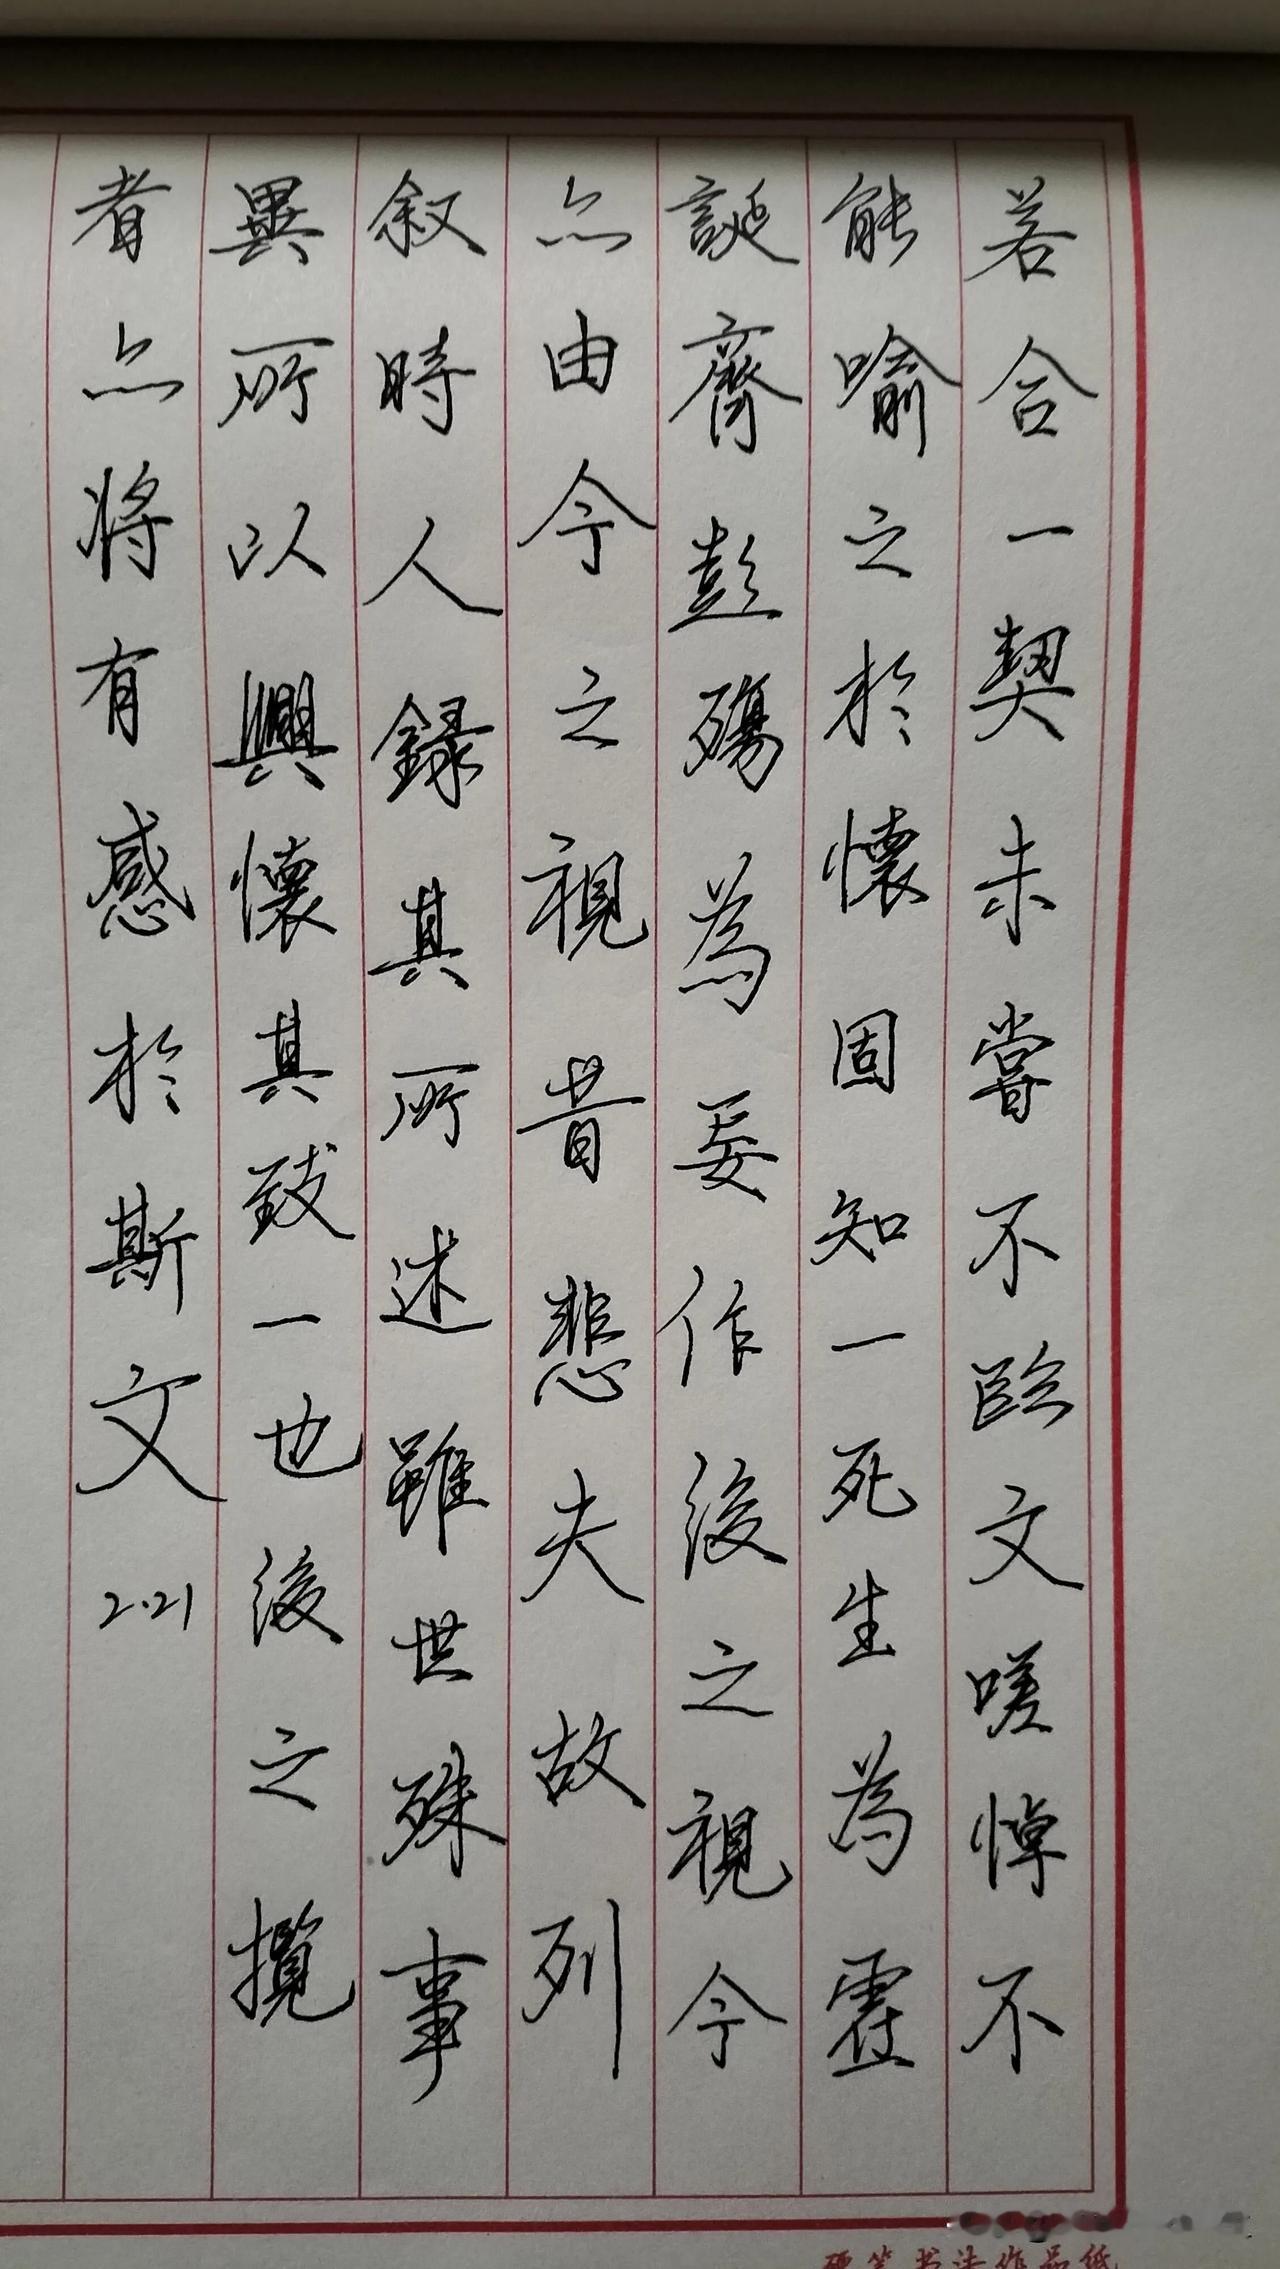 若合一契未嘗不臨文嗟悼不
能喻之於懷固知一死生為虛
誕齊彭殤為妄作後之視今
亦由今之視昔悲夫故列
叙時人錄其所述雖世殊事
異所以興懷其致一也後之攬
者亦將有感於斯文
2.21
硬笔书法作品纸